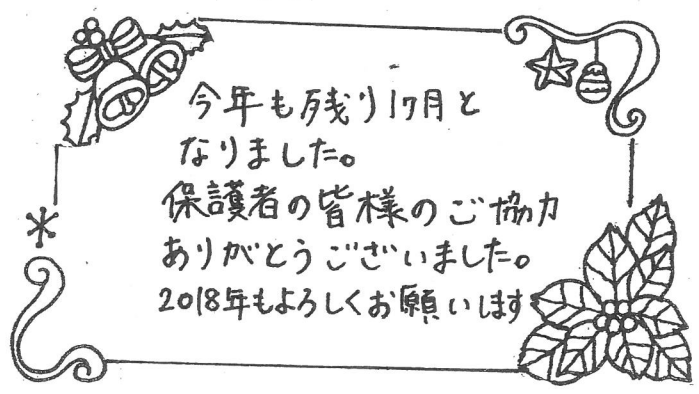 今年も残り1ヶ月と
なりました。
保護者の皆様のご協力
ありがとうございました。
2018年もよろしくお願いします